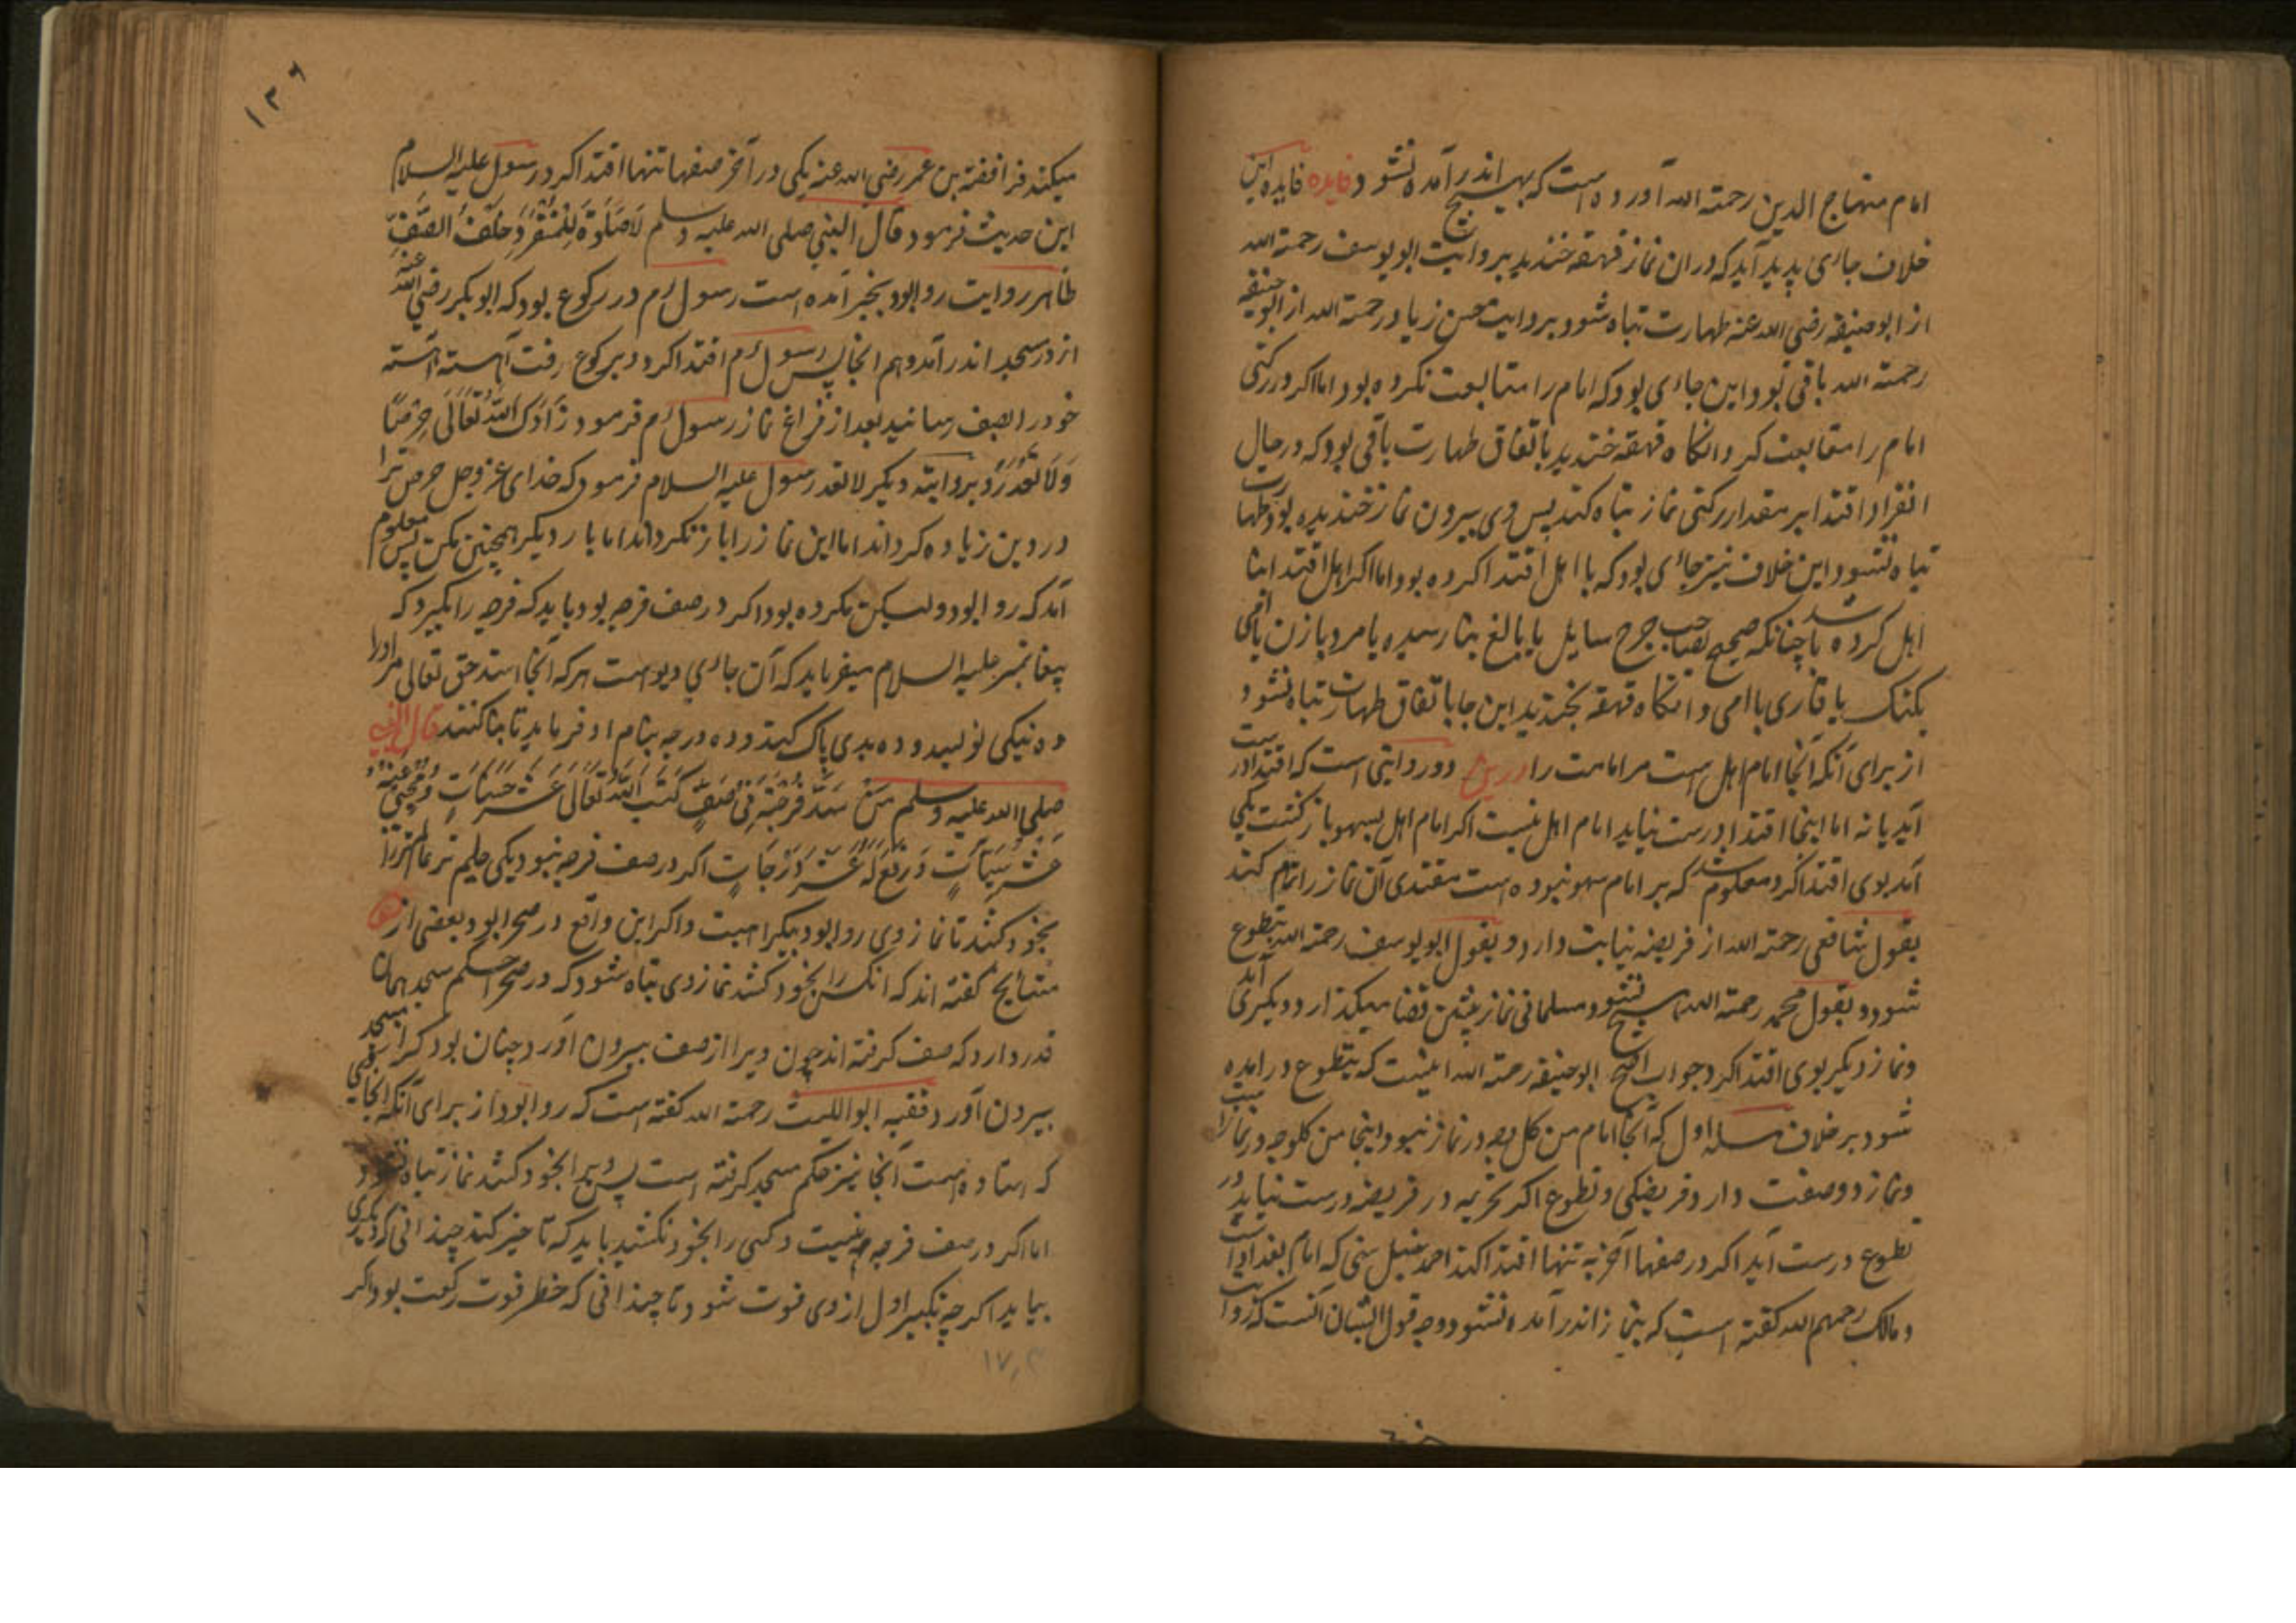 امام منهاج الدین رحمته الله آورده است که بهیچ اندر آمده نشود فایده فایده این
خلاف جائی پدید آید که در ان نماز قهقهه خندید بروایت ابو یوسف رحمته الله
از ابو حنیفه رضی الله عنه طهارت تباه شود و بروایت حسن زیاد رحمته الله از ابو حنیفه
رحمته الله باقی بود و این جائی بود که امام را متابعت نکرده بود اما اگر در رکنی
امام را متابعت کرد و انگاه قهقهه خندید باتفاق طهارت باقی بود که در حال
انفراد اقتدا بر مقدار رکنی نماز تباه کند پس وی بیرون نماز خندیده بود طهارت
تباه نشود و این خلاف نیز جائی بود که با اهل اقتدا کرده بود اما اگر اهل اقتدا بنا
اهل کرده باشد چنانکه صحیح بصاحب جرح سایل یا بالغ بنا رسیده یا مرد با زن یا امی
بکنک یا قاری با امی و انگاه قهقهه بخندید این جا باتفاق طهارت تباه نشود
از برای آنکه آنجا امام اهل است مر امامت را درین دو روایتی است که اقتدا درست
آید یا نه اما اینجا اقتدا درست نیاید امام اهل نیست اگر امام اهل بسهو باز گشت یکی
آمد بوی اقتدا کرد معلوم شد که بر امام سهو نبوده است مقتدی آن نماز را تمام کند
بقول شافعی رحمته الله از فریضه نیابت دارد و بقول ابو یوسف رحمته الله بتطوع
شود و بقول محمد رحمته الله هیچ نشود مسلمانی نماز پیشین قضا میگذارد دیگری آید
و نماز دیگر بوی اقتدا کرد جواب اصح ابو حنیفه رحمته الله اینست که بتطوع در آمده
شود بر خلاف مسله اول که آنجا امام من کل وجه در نماز نبود و اینجا من کل وجه در نماز است
و نماز دو صفت دارد فریضگی و تطوع اگر تحریمه در فریضه درست نیاید در
تطوع درست آید اگر در صفها آخر به تنها اقتدا کند احمد حنبل سنی که امام بغداد است
و مالک رحمهم الله گفته است که بنماز اندر آمده نشود و وجه قول ایشان آنست که روایت
۱۳۶
میکند فرافضه بن عمر رضی الله عنه یکی در آخر صفها تنها اقتدا کرد رسول علیه السلام
این حدیث فرمود قال النبی صلی الله علیه وسلم لَا صَلٰوةَ لِلْمُنْفَرِدِ خَلْفَ الصَّفِّ
ظاهر روایت روا بود بخبر آمده است رسول م در رکوع بود که ابو بکر رضی الله عنه
از در مسجد اندر آمد و هم انجا پس رسول م اقتدا کرد و برکوع رفت آهسته آهسته
خود را بصف رسانید بعد از فراغ نماز رسول م فرمود زَادَکَ اللّٰهُ تَعَالٰی حِرْصًا
وَلَا تَعُدْ و بروایته دیگر لا تعد رسول علیه السلام فرمود که خدای عز و جل حرص ترا
در دین زیاده کرداند اما این نماز را باز نکرداند اما بار دیگر همچنین مکن پس معلوم
آمد که روا بود ولیکن مکروه بود اگر در صف فرجه بود باید که فرجه را بگیرد که
پیغامبر علیه السلام میفرماید که آن جای دیو است هر که آنجا استد حق تعالی مر او را
ده نیکی نویسد و ده بدی پاک کند و ده درجه بنام او فرماید تا بنا کنند قال النبی
صلی الله علیه وسلم مَنْ سَدَّ فُرْجَةً فِیْ صَفٍّ کَتَبَ اللّٰهُ تَعَالٰی عَشْرَ حَسَنَاتٍ وَ مُحِیَ عَنْهُ
عَشْرُ سَیِّاٰتٍ وَ رُفِعَ لَهٗ عَشْرُ دَرَجَاتٍ اگر در صف فرجه نبود یکی حلیم تر عالم تر را
بخود کشد تا نماز وی روا بود بیکراهیت و اگر این واقع در صحرا بود بعضی از
مشایخ گفته اند که انکس را بخود کشد نماز وی تباه شود که در صحرا حکم مسجد همان
قدر دارد که صف گرفته اند چون ویرا از صف بیرون آورد چنان بود کز مسجد
بیرون آورد فقیه ابو اللیث رحمته الله گفته است که روا بود از برای آنکه انجائی
که استاده است آنجا نیز حکم مسجد گرفته است پس ویرا بخود کشد نماز تباه نشود
اما اگر در صف فرجه نیست و کسی را بخود نکشید باید که تاخیر کند چندانی که دیگری
بیاید اگر چه تکبیر اول از وی فوت شود تا چندانی که خطر فوت رکعت بود و اگر